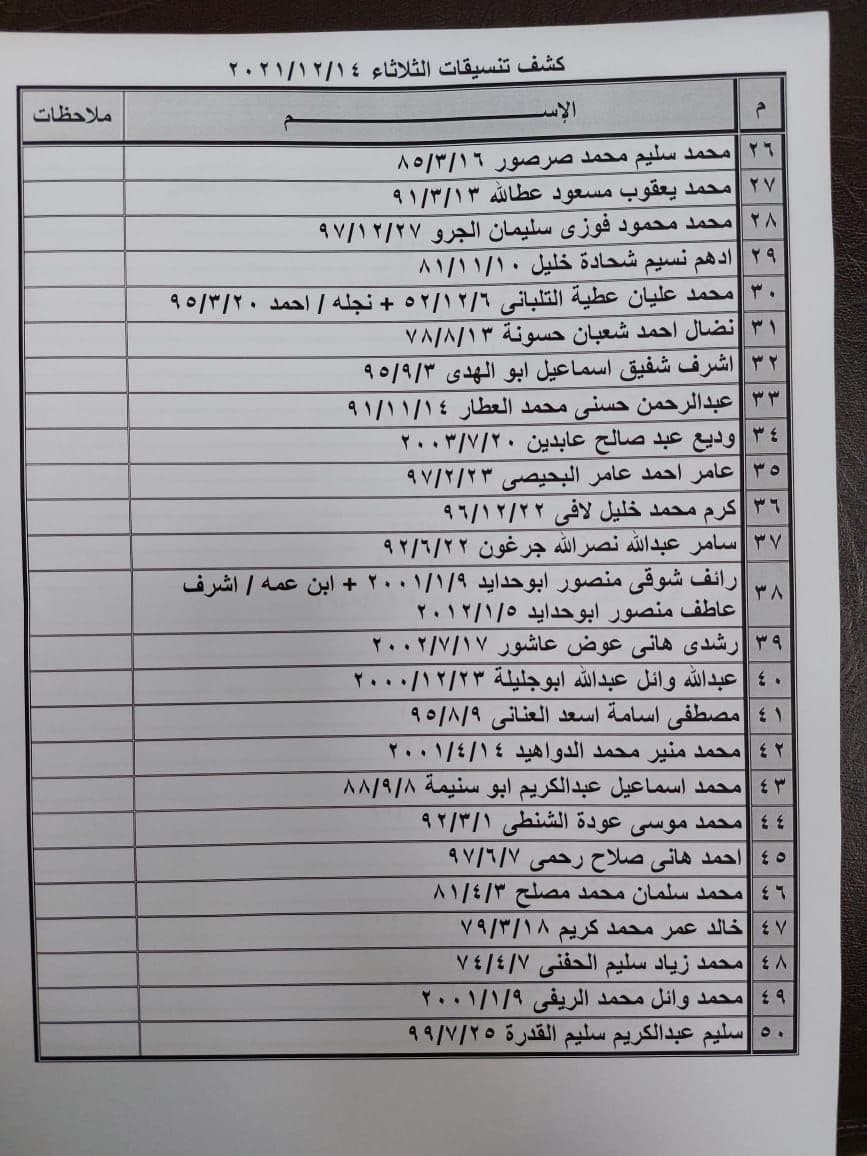 كشف تنسيقات الثلاثاء ٢٠٢١/١٢/١٤
م الإســـــــــــــــــــم ملاحظات
٢٦ محمد سليم محمد صرصور ٨٥/٣/١٦
٢٧ محمد يعقوب مسعود عطالله ٩١/٣/١٣
٢٨ محمد محمود فوزى سليمان الجرو ٩٧/١٢/٢٧
٢٩ ادهم نسيم شحادة خليل ٨١/١١/١٠
٣٠ محمد عليان عطية التلبانى ٥٢/١٢/٦ + نجله / احمد ٩٥/٣/٢٠
٣١ نضال احمد شعبان حسونة ٧٨/٨/١٣
٣٢ اشرف شفيق اسماعيل ابو الهدى ٩٥/٩/٣
٣٣ عبدالرحمن حسنى محمد العطار ٩١/١١/١٤
٣٤ وديع عبد صالح عابدين ٢٠٠٣/٧/٢٠
٣٥ عامر احمد عامر البحيصى ٩٧/٢/٢٣
٣٦ كرم محمد خليل لافى ٩٦/١٢/٢٢
٣٧ سامر عبدالله نصرالله جرغون ٩٢/٦/٢٢
٣٨ رائف شوقى منصور ابوحدايد ٢٠٠١/١/٩ + ابن عمه / اشرف
عاطف منصور ابوحدايد ٢٠١٢/١/٥
٣٩ رشدى هانى عوض عاشور ٢٠٠٢/٧/١٧
٤٠ عبدالله وائل عبدالله ابوجليلة ٢٠٠٠/١٢/٢٣
٤١ مصطفى اسامة اسعد العنانى ٩٥/٨/٩
٤٢ محمد منير محمد الدواهيد ٢٠٠١/٤/١٤
٤٣ محمد اسماعيل عبدالكريم ابو سنيمة ٨٨/٩/٨
٤٤ محمد موسى عودة الشنطى ٩٢/٣/١
٤٥ احمد هانى صلاح رحمى ٩٧/٦/٧
٤٦ محمد سلمان محمد مصلح ٨١/٤/٣
٤٧ خالد عمر محمد كريم ٧٩/٣/١٨
٤٨ محمد زياد سليم الحفنى ٧٤/٤/٧
٤٩ محمد وائل محمد الريفى ٢٠٠١/١/٩
٥٠ سليم عبدالكريم سليم القدرة ٩٩/٧/٢٥